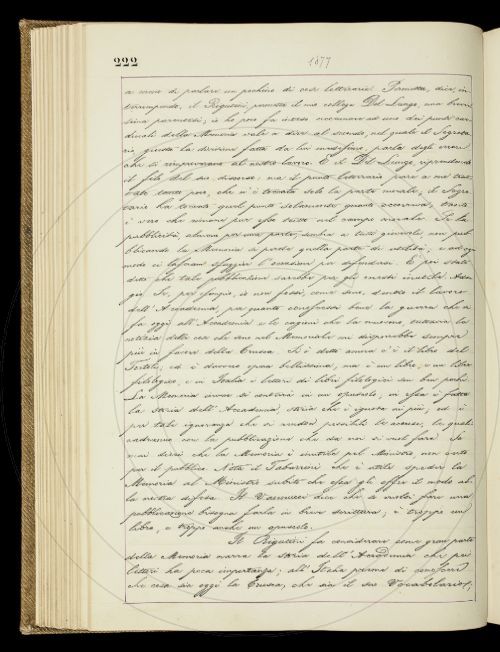 222
1877
a corso di parlare un pochino di cose letterarie. Permetta, dice, in
terrompendo, il Rigutini, permetta il mio collega Del Lungo, una brevis
sima parentesi; io ho poco fa inteso accennare ad uno dei punti car
dinali della Memoria vale a dire al secondo, nel quale il Segreta
rio, giusta la divisione fatta da lui medesimo, parla degli errori
che si rimproverano al nostro lavoro. E il Del Lungo, riprendendo
il filo del suo discorso: ma il punto letterario pare a me trat
tato tanto poco, che vi è toccata solo la parte morale; il Segre
tario ha toccato quel punto solamente quanto occorreva, tanto
è vero che siamo per essa tutti nel campo morale. Se la
pubblicità, almeno per una parte, sembra a tutti giovevole non pub
blicando la Memoria si perde quella parte di utilità, e ad ogni
modo ci lasciam sfuggire l'occasione per difenderci. È poi stato
detto che tale pubblicazione sarebbe per gli eruditi inutile. Adagio
gio. Io, per esempio, se non fossi, come sono, dentro il lavoro
dell'Accademia, per quanto conoscessi bene la guerra che si
fa oggi all'Accademia e le cagioni che la muovono, tuttavia la
notizia delle cose che sono nel Memoriale mi disporrebbe sempre
più in favore della Crusca. Si è detto ancora c'è il libro del
Tortoli; ed è davvero opera bellissima, ma è un libro, e un libro
filologico, e in Italia i lettori di libri filologici son ben pochi.
La Memoria invece si conterrà in un opuscolo; in essa è fatta
la storia dell'Accademia, storia che è ignota ai più; ed è
per tale ignoranza che si rendon possibili le accuse, le quali
cadranno con la pubblicazione che da noi si vuol fare. Se
mai dirsi che la Memoria è inutile pel Ministro, non certo
per il pubblico. Nota il Tabarrini che è utile spedir la
Memoria al Ministro subito che essa gli offre il modo alla
la nostra difesa. Il Vannucci dice che se vuolsi fare una
pubblicazione bisogna farla in breve scrittura; è troppo un
libro, e troppo anche un opuscolo.
Il Rigutini fa considerare come gran parte
della Memoria narra la storia dell'Accademia che pei
lettori ha poca importanza; all'Italia preme di conoscere
che cosa sia oggi la Crusca, che sia il suo Vocabolario;